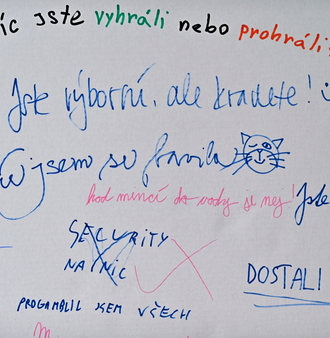 íc jste vyhráli nebo prohráli
Jste výborní, ale kradete!
jsem se bavila
hod mincí do vody je nej! Jste
SECURITY
NA NIC
DOSTALI
PROGAMBLIL JSEM VŠECH